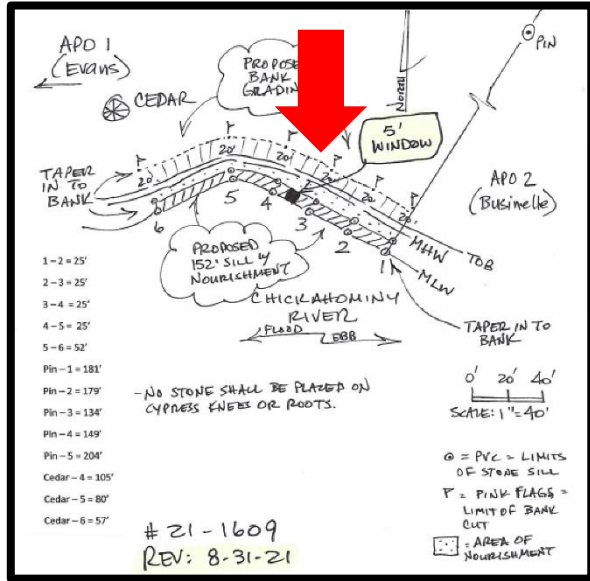 APO 1
(Evans)
CEDAR
PROPOSED
BANK
GRADIN
NORTH
PIN
5'
WINDOW
APO 2
(Businelle)
TAPER
IN TO
BANK
20'
20'
20'
20'
20'
20'
6
5
4
3
2
1
MHW
TOB
MLW
PROPOSED
152' SILL W/
NOURISHMENT
CHICKAHOMINY
RIVER
FLOOD
EBB
TAPER IN TO
BANK
1-2 = 25'
2-3 = 25'
3-4 = 25'
4-5 = 25'
5-6 = 52'
Pin-1 = 181'
Pin-2 = 179'
Pin-3 = 134'
Pin-4 = 149'
Pin-5 = 204'
Cedar-4 = 105'
Cedar-5 = 80'
Cedar-6 = 57'
-NO STONE SHALL BE PLACED ON
CYPRESS KNEES OR ROOTS.
0' 20' 40'
SCALE: 1"=40'
= PVC = LIMITS
OF STONE SILL
= PINK FLAGS =
LIMIT OF BANK
CUT
= AREA OF
NOURISHMENT
# 21-1609
REV: 8-31-21